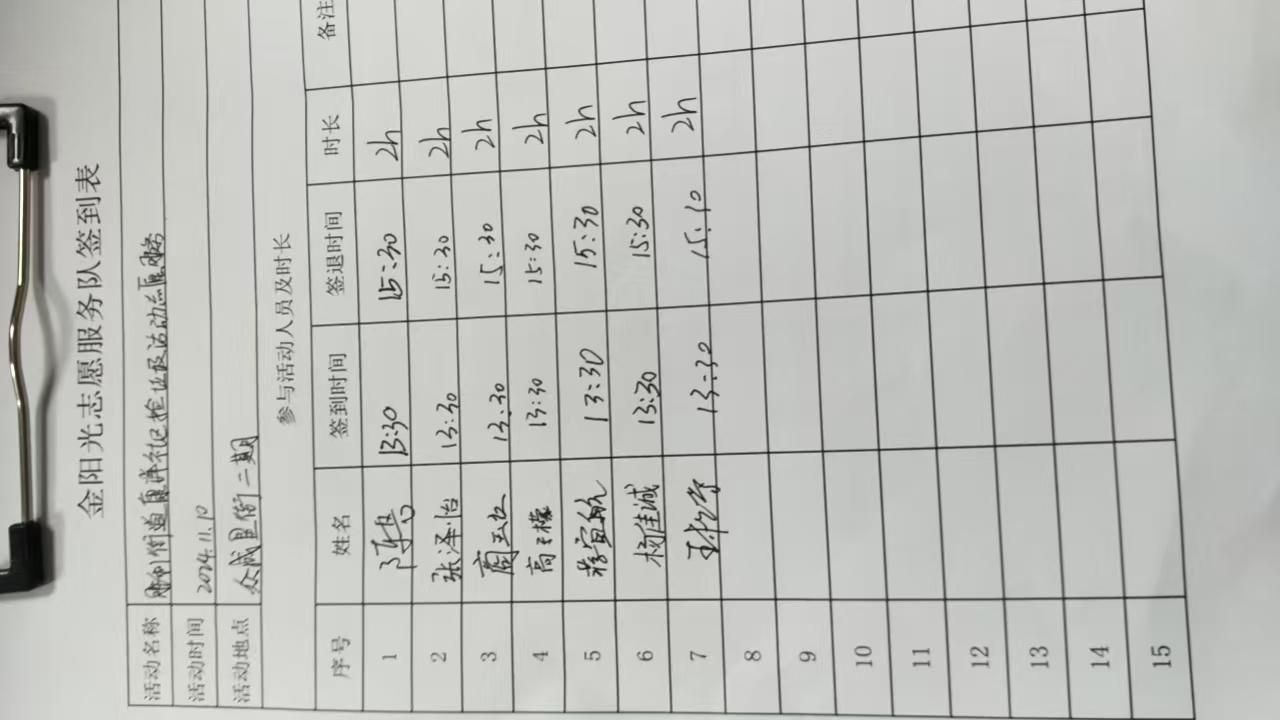 金阳光志愿服务队签到表
活动名称
活动时间 2024.11.10
活动地点 众成里街二期
参与活动人员及时长
序号 姓名 签到时间 签退时间 时长 备注
1 13:30 15:30 2h
2 张泽怡 13:30 15:30 2h
3 13:30 15:30 2h
4 13:30 15:30 2h
5 13:30 15:30 2h
6 杨佳诚 13:30 15:30 2h
7 13:30 15:10 2h
8
9
10
11
12
13
14
15